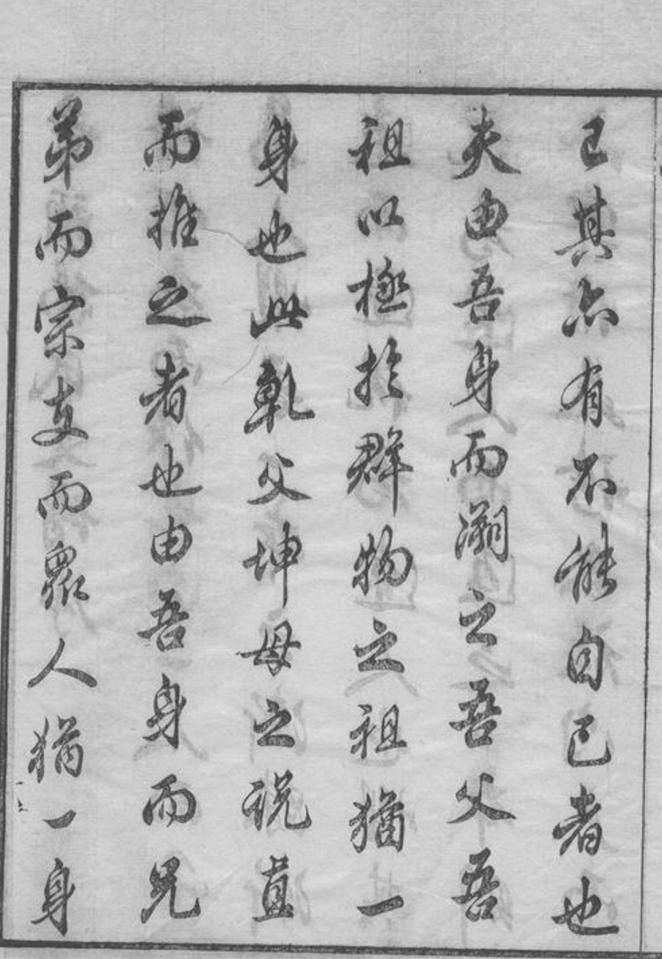 已其亦有不能自已者也
夫由吾身而溯之吾父吾
祖以極於群物之祖猶一
身也此乾父坤母之説直
而推之者也由吾身而兄
弟而宗支而眾人猶一身